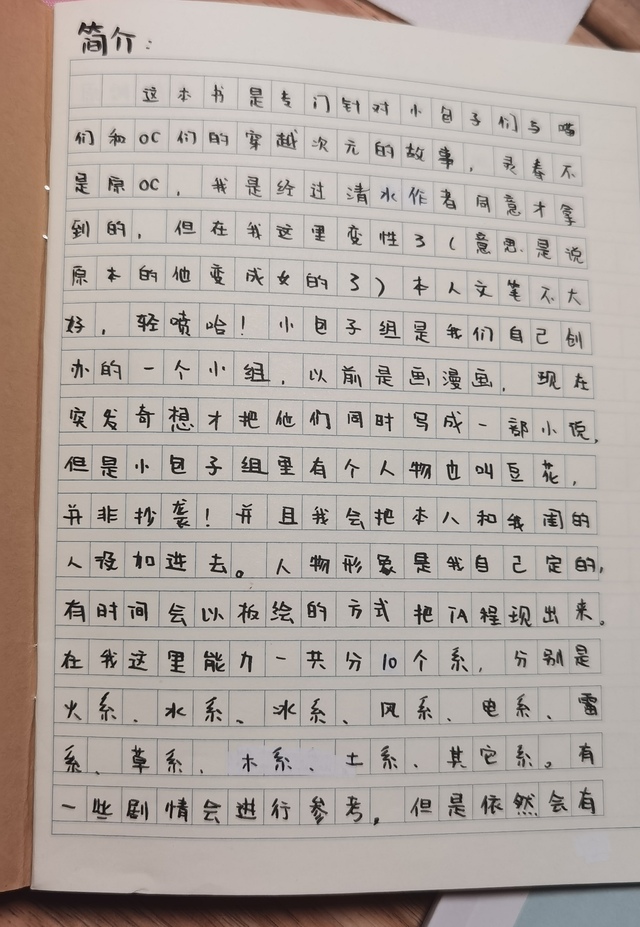 简介：
这本书是专门针对小包子们与喵
们和OC们的穿越次元的故事，灵春不
是原OC，我是经过清水作者同意才拿
到的，但在我这里变性了（意思是说
原本的他变成女的了）本人文笔不大
好，轻喷哈！小包子组是我们自己创
办的一个小组，以前是画漫画，现在
突发奇想才把他们同时写成一部小说，
但是小包子组里有个人物也叫豆花，
并非抄袭！并且我会把本人和我闺的
人设加进去。人物形象是我自己定的，
有时间会以板绘的方式把TA程现出来。
在我这里能力一共分10个系，分别是
火系、水系、冰系、风系、电系、雷
系、草系、木系、土系、其它系。有
一些剧情会进行参考，但是依然会有